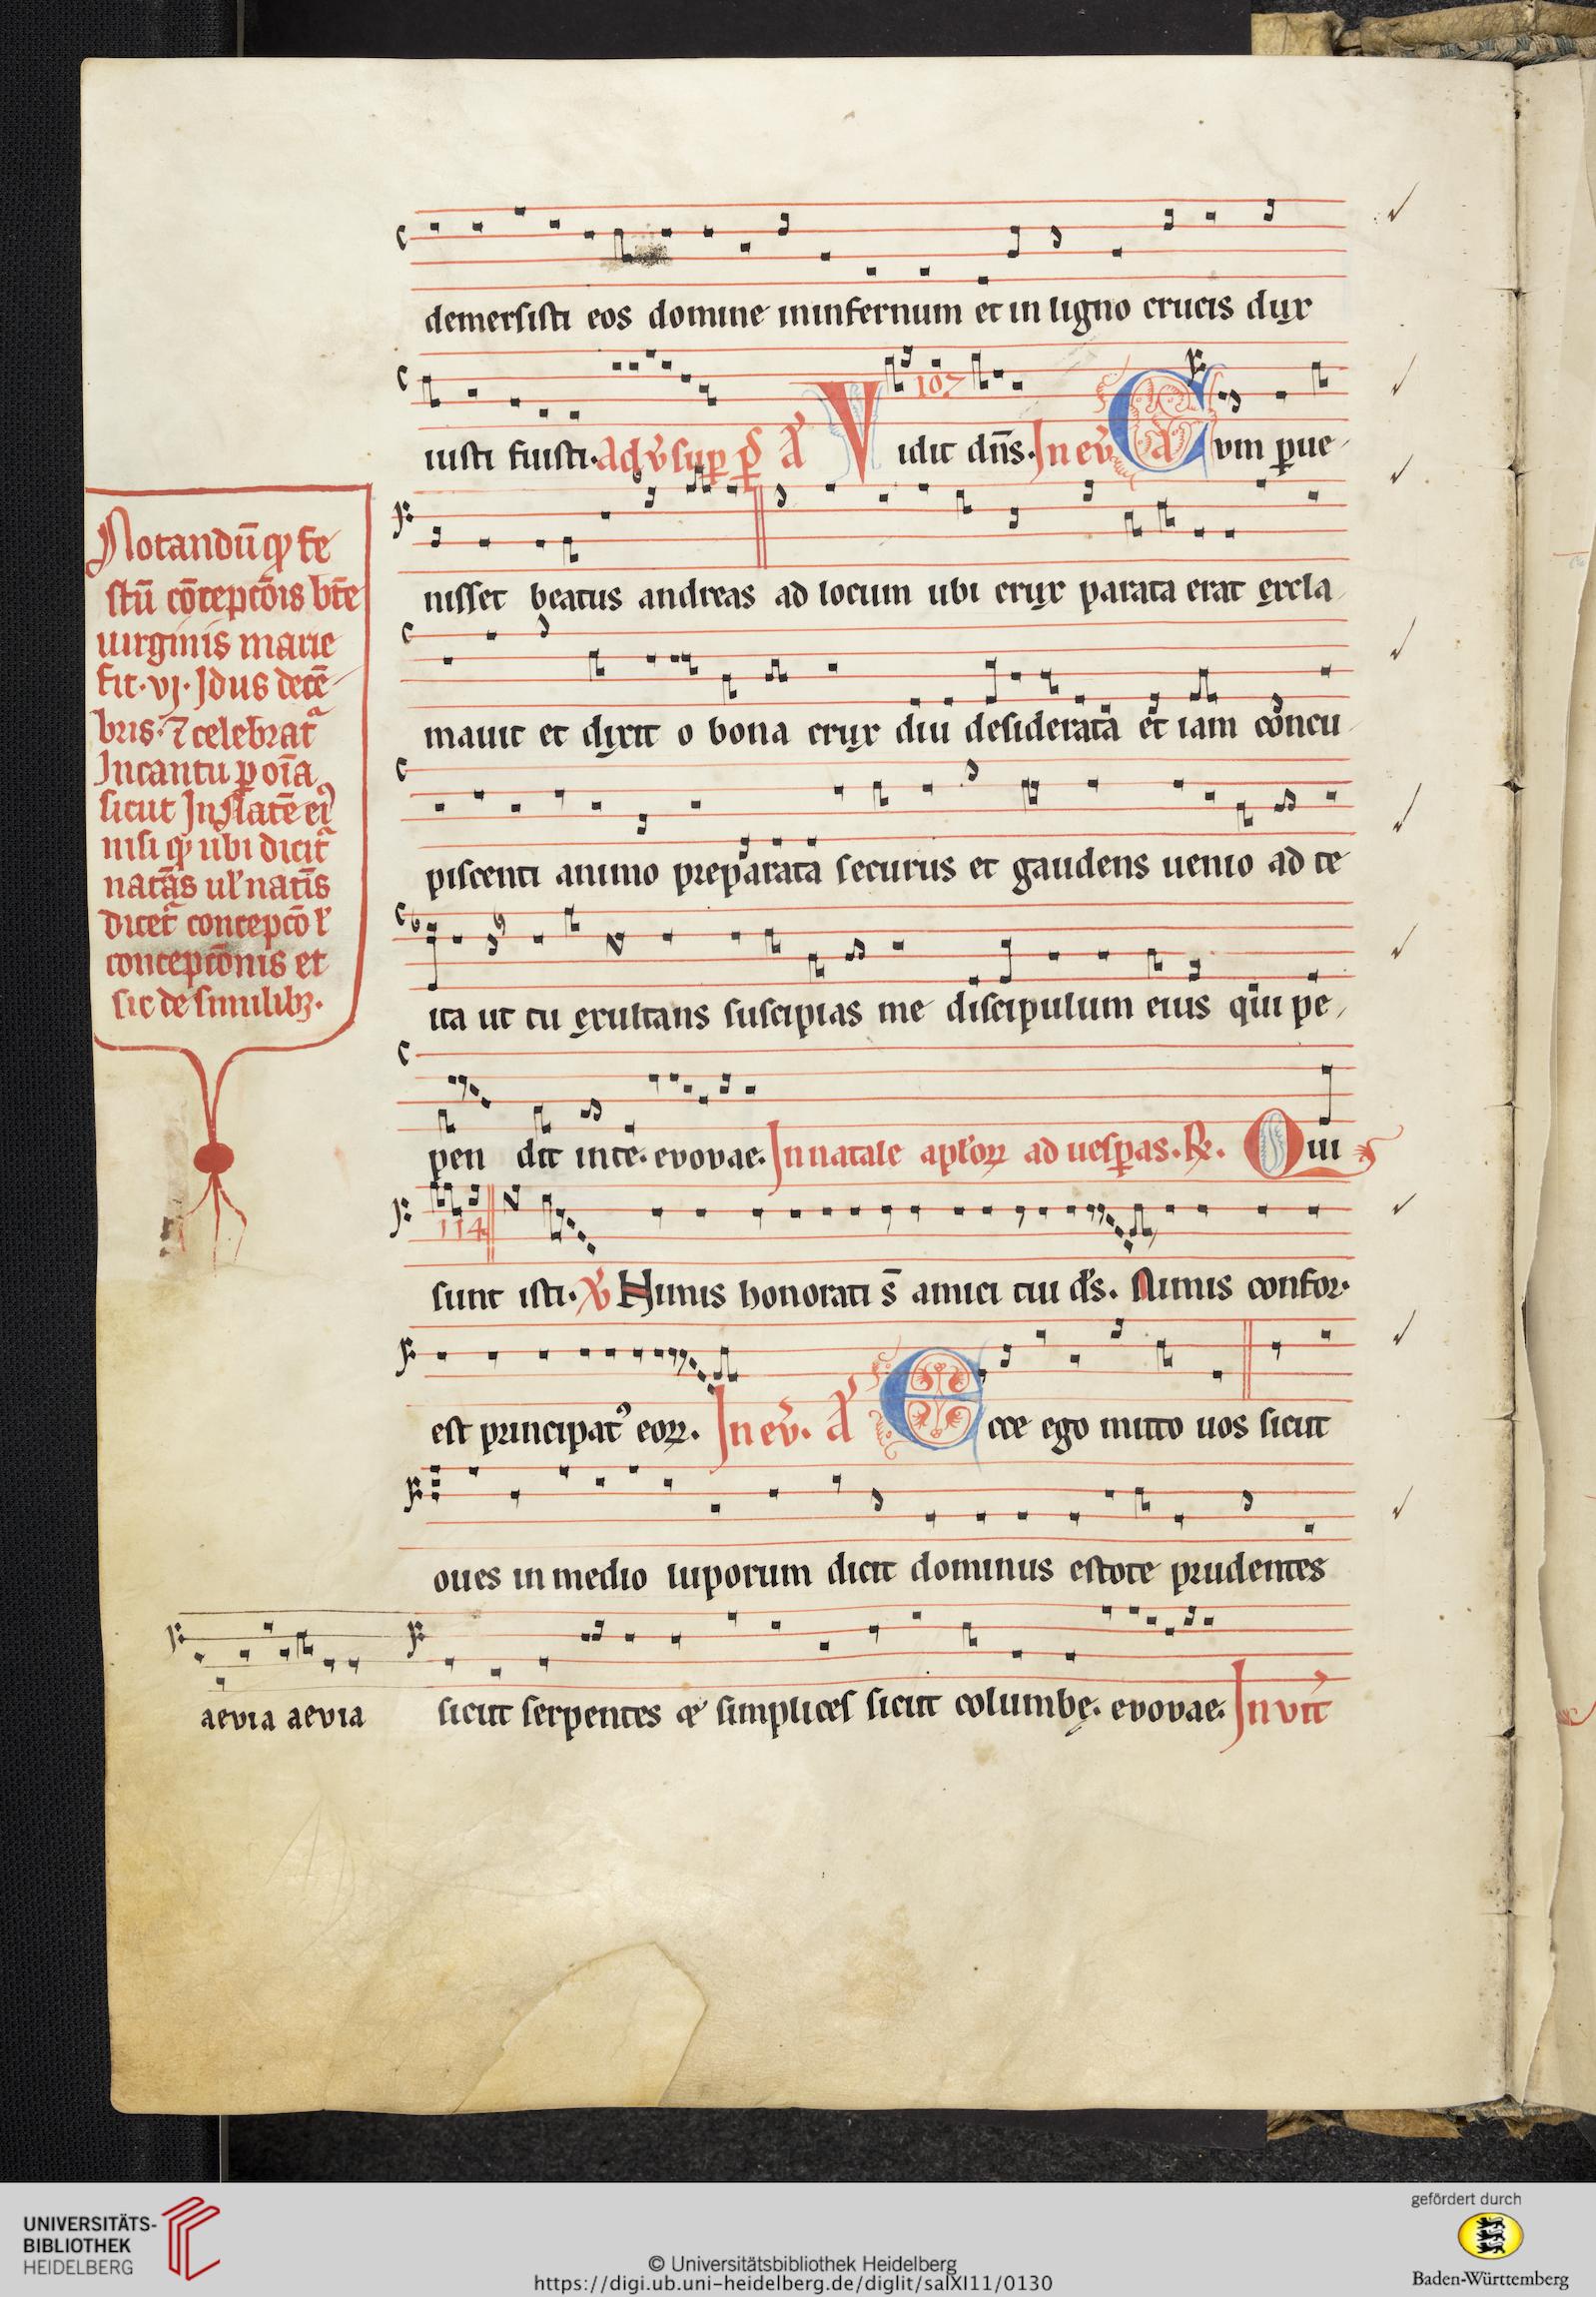 demersisti eos domine ininfernum et in ligno crucis dux
107
iusti fuisti. Adv̄ sup̱ p̄s a͛ Vidit dn̄s. In ev̄ a͛ Cvm p̱ue
nisset beatus andreas ad locum ubi crux parata erat excla
mauit et dixit o bona crux diu desiderata et iam concu
piscenti animo preparata securus et gaudens uenio ad te
ita ut tu exultans suscipias me discipulum eius qui pe
pen dit inte. evovae. In natale apl'oꝝ ad uesp̱as. ℟. Qui
114
sunt isti. ℣ Nimis honorati s̄ amici tui ds̄. Nimis confor.
est principatꝰ eoꝝ. In ev̄. a͛ Ecce ego mitto uos sicut
oues in medio luporum dicit dominus estote prudentes
sicut serpentes et simplices sicut columbę. evovae. Invit̄
Notandū qͥ fe
stū cōceptōis btē
uirginis marie
fit. vj. Idus decē
bris. ⁊ celebrat᷑
In cantu p̱ oīa
sicut In natē eiꝰ
nisi qͥ ubi dicit᷑
natās ul' natīs
dicet᷑ concepcō l'
concepcōnis et
sic de similibꝫ.
aevia aevia
UNIVERSITÄTS-
BIBLIOTHEK
HEIDELBERG
© Universitätsbibliothek Heidelberg
https://digi.ub.uni-heidelberg.de/diglit/salXI11/0130
gefördert durch
Baden-Württemberg